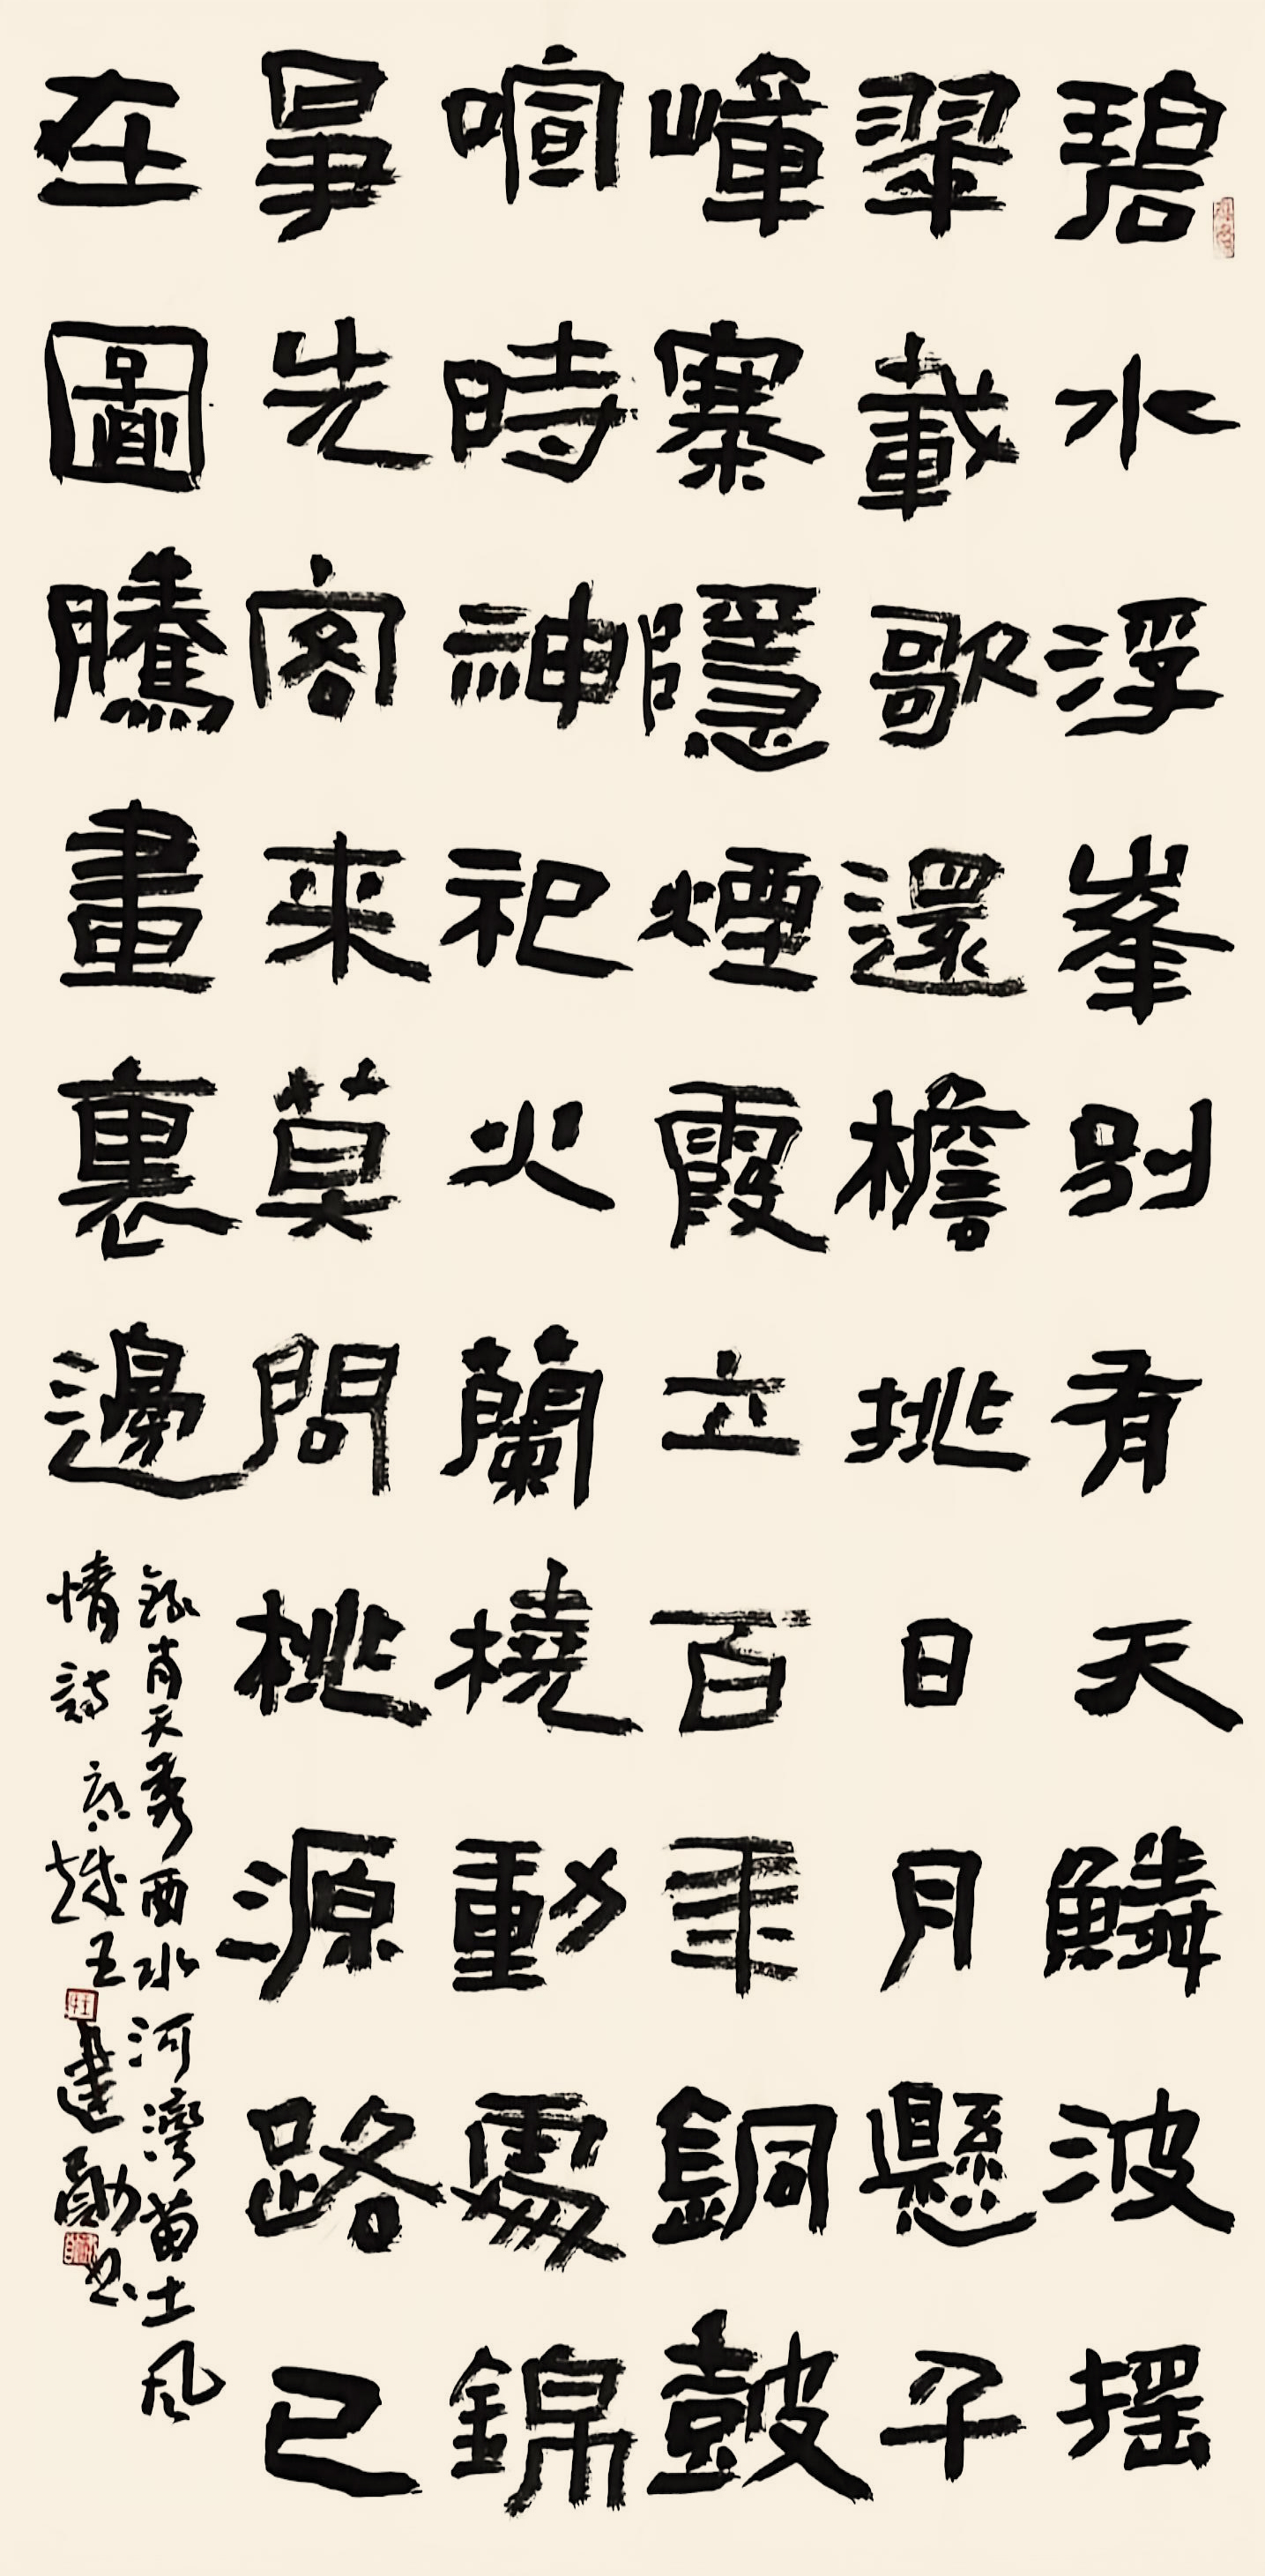 碧水浮峯别有天鱗波摇
翠載歌還檐挑日月懸千
嶂寨隱煙霞立百年銅鼓
喧時神祀火蘭橈動處錦
爭先客來莫問桃源路已
在圖騰畫裏邊
錄肖天秀酉水河灣苗土風
情詩京城王建勛书